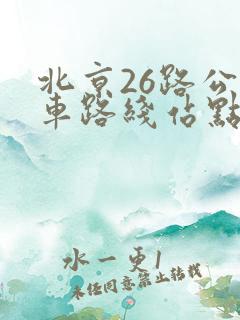 北京26路公
車路綫佔點
水一更1
未经同意禁止转载